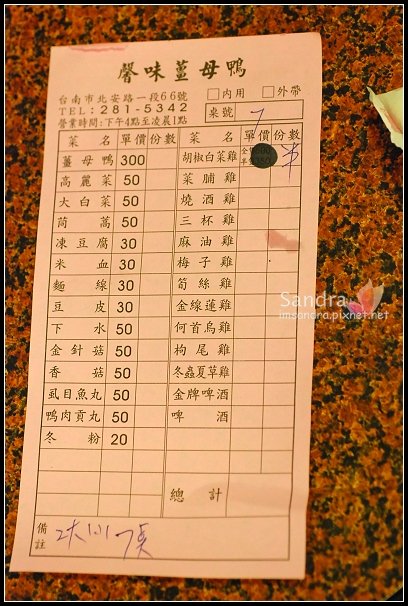 馨味薑母鴨
台南市北安路一段66號
TEL:281-5342
營業時間:下午4點至凌晨1點
□內用 □外帶
桌號 7
菜名 單價 份數 菜名 單價 份數
薑母鴨 300 胡椒白菜雞 半
高麗菜 50 菜脯雞
大白菜 50 燒酒雞
茼蒿 50 三杯雞
凍豆腐 30 麻油雞
米血 30 梅子雞
麵線 30 筍絲雞
豆皮 30 金線蓮雞
下水 50 何首烏雞
金針菇 50 枸尾雞
香菇 50 冬蟲夏草雞
虱目魚丸 50 金牌啤酒
鴨肉貢丸 50 啤酒
冬粉 20
總計
備註
Sandra
imsandra.pixnet.net